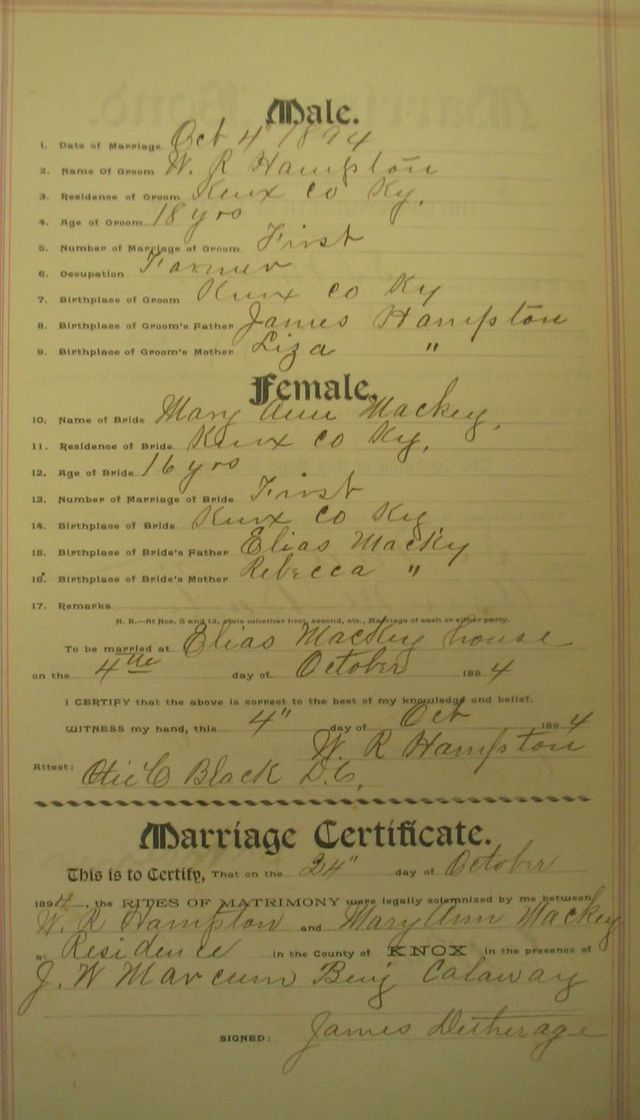 Male.
1. Date of Marriage Oct 4 1894
2. Name Of Groom W. R Hampton
3. Residence of Groom Knox Co Ky.
4. Age of Groom 18 yrs
5. Number of Marriage of Groom First
6. Occupation Farmer
7. Birthplace of Groom Knox co Ky
8. Birthplace of Groom's Father James Hampton
9. Birthplace of Groom's Mother Liza "
Female.
10. Name of Bride Mary Ann Mackey,
11. Residence of Bride Knox Co Ky,
12. Age of Bride 16 yrs
13. Number of Marriage of Bride First
14. Birthplace of Bride Knox Co Ky
15. Birthplace of Bride's Father Elias Macky
16. Birthplace of Bride's Mother Rebecca "
17. Remarks
N. B.—At Nos. 5 and 13, state whether first, second, etc., Marriage of each or either party.
To be married at Elias Mackey house
on the 4th day of October 1894
I CERTIFY that the above is correct to the best of my knowledge and belief.
WITNESS my hand, this 4" day of Oct 1894
W. R Hampton
Attest: Black D.C,
Marriage Certificate.
This is to Certify, That on the 24" day of October
1894, the RITES OF MATRIMONY were legally solemnized by me between
W. R Hampton and Mary Ann Mackey
at Residence in the County of KNOX in the presence of
J. W Marcum Calaway
SIGNED: James